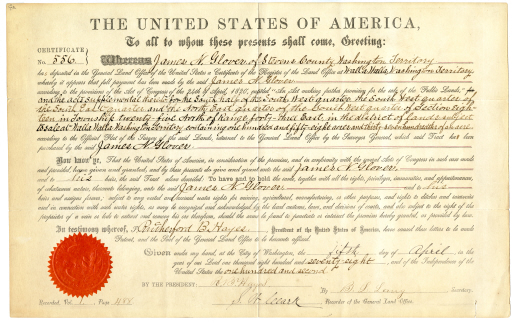 THE UNITED STATES OF AMERICA,
To all to whom these presents shall come, Greeting:
CERTIFICATE
No. 556. Whereas James N. Glover of Stevens County Washington Territory
has deposited in the General Land Office of the United States a Certificate of the Register of the Land Office at Walla Walla Washington Territory,
whereby it appears that full payment has been made by the said James N. Glover
according to the provisions of the Act of Congress of the 24th of April, 1820, entitled "An Act making further provision for the sale of the Public Lands," for
and the acts supplemental thereto for the South half of the South West quarter the South West quarter of
the South East quarter and the North East quarter of the South West quarter of Section eigh-
teen in Township twenty five North of Range forty three East in the district of lands subject
to sale at Walla Walla Washington Territory containing one hundred and fifty eight acres and hundredths of an acre
according to the Official Plat of the Survey of the said Lands, returned to the General Land Office by the Surveyor General, which said Tract has been
purchased by the said James N. Glover
Now know ye, That the United States of America, in consideration of the premises, and in conformity with the several Acts of Congress in such case made
and provided, have given and granted, and by these presents do give and grant unto the said James N. Glover
and to his heirs, the said Tract above described: To have and to hold the same, together with all the rights, privileges, immunities, and appurtenances,
of whatsoever nature, thereunto belonging, unto the said James N. Glover and to his
heirs and assigns forever, subject to any vested and accrued water rights for mining, agricultural, manufacturing, or other purposes, and rights to ditches and reservoirs
used in connection with such water rights, as may be recognized and acknowledged by the local customs, laws, and decisions of courts, and also subject to the right of the
proprietor of a vein or lode to extract and remove his ore therefrom, should the same be found to penetrate or intersect the premises hereby granted, as provided by law.
In testimony whereof, I Rutherford B. Hayes, President of the United States of America, have caused these letters to be made
Patent, and the Seal of the General Land Office to be hereunto affixed.
Given under my hand, at the City of Washington, the fifth day of April, in the
year of our Lord one thousand eight hundred and seventy eight, and of the Independence of the
United States the one hundred and second
BY THE PRESIDENT: R. B. Hayes
By Secretary.
S. W. Clark Recorder of the General Land Office.
Recorded, Vol. 1 Page 458